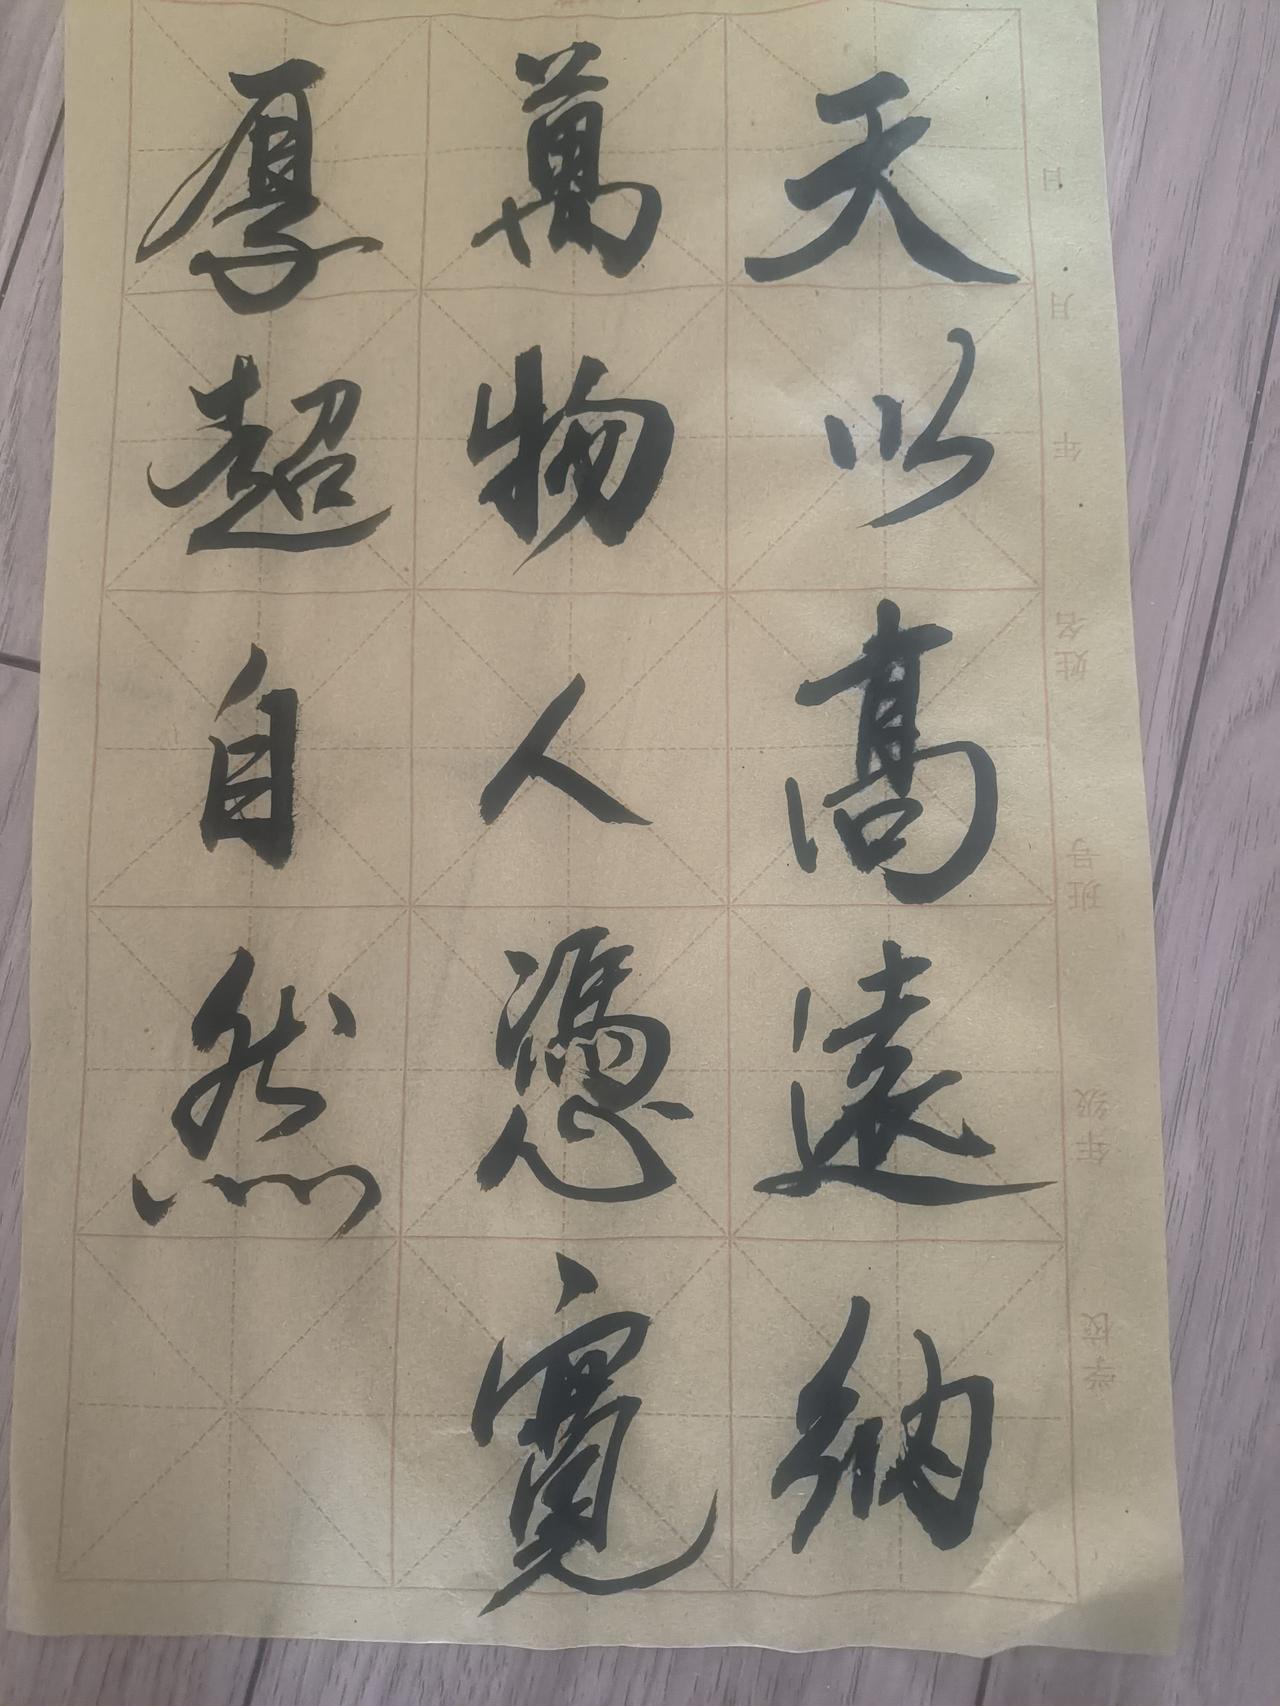 天以高遠納
萬物人憑寬
厚超自然
日 月 年 姓名 班号 年级 学校